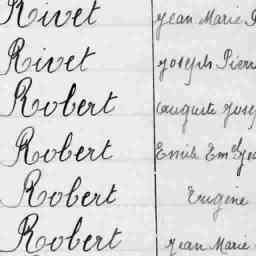 Rivet Jean Marie
Rivet Joseph Pierre
Robert Auguste Joseph
Robert Emile Em
Robert Eugène
Robert Jean Marie